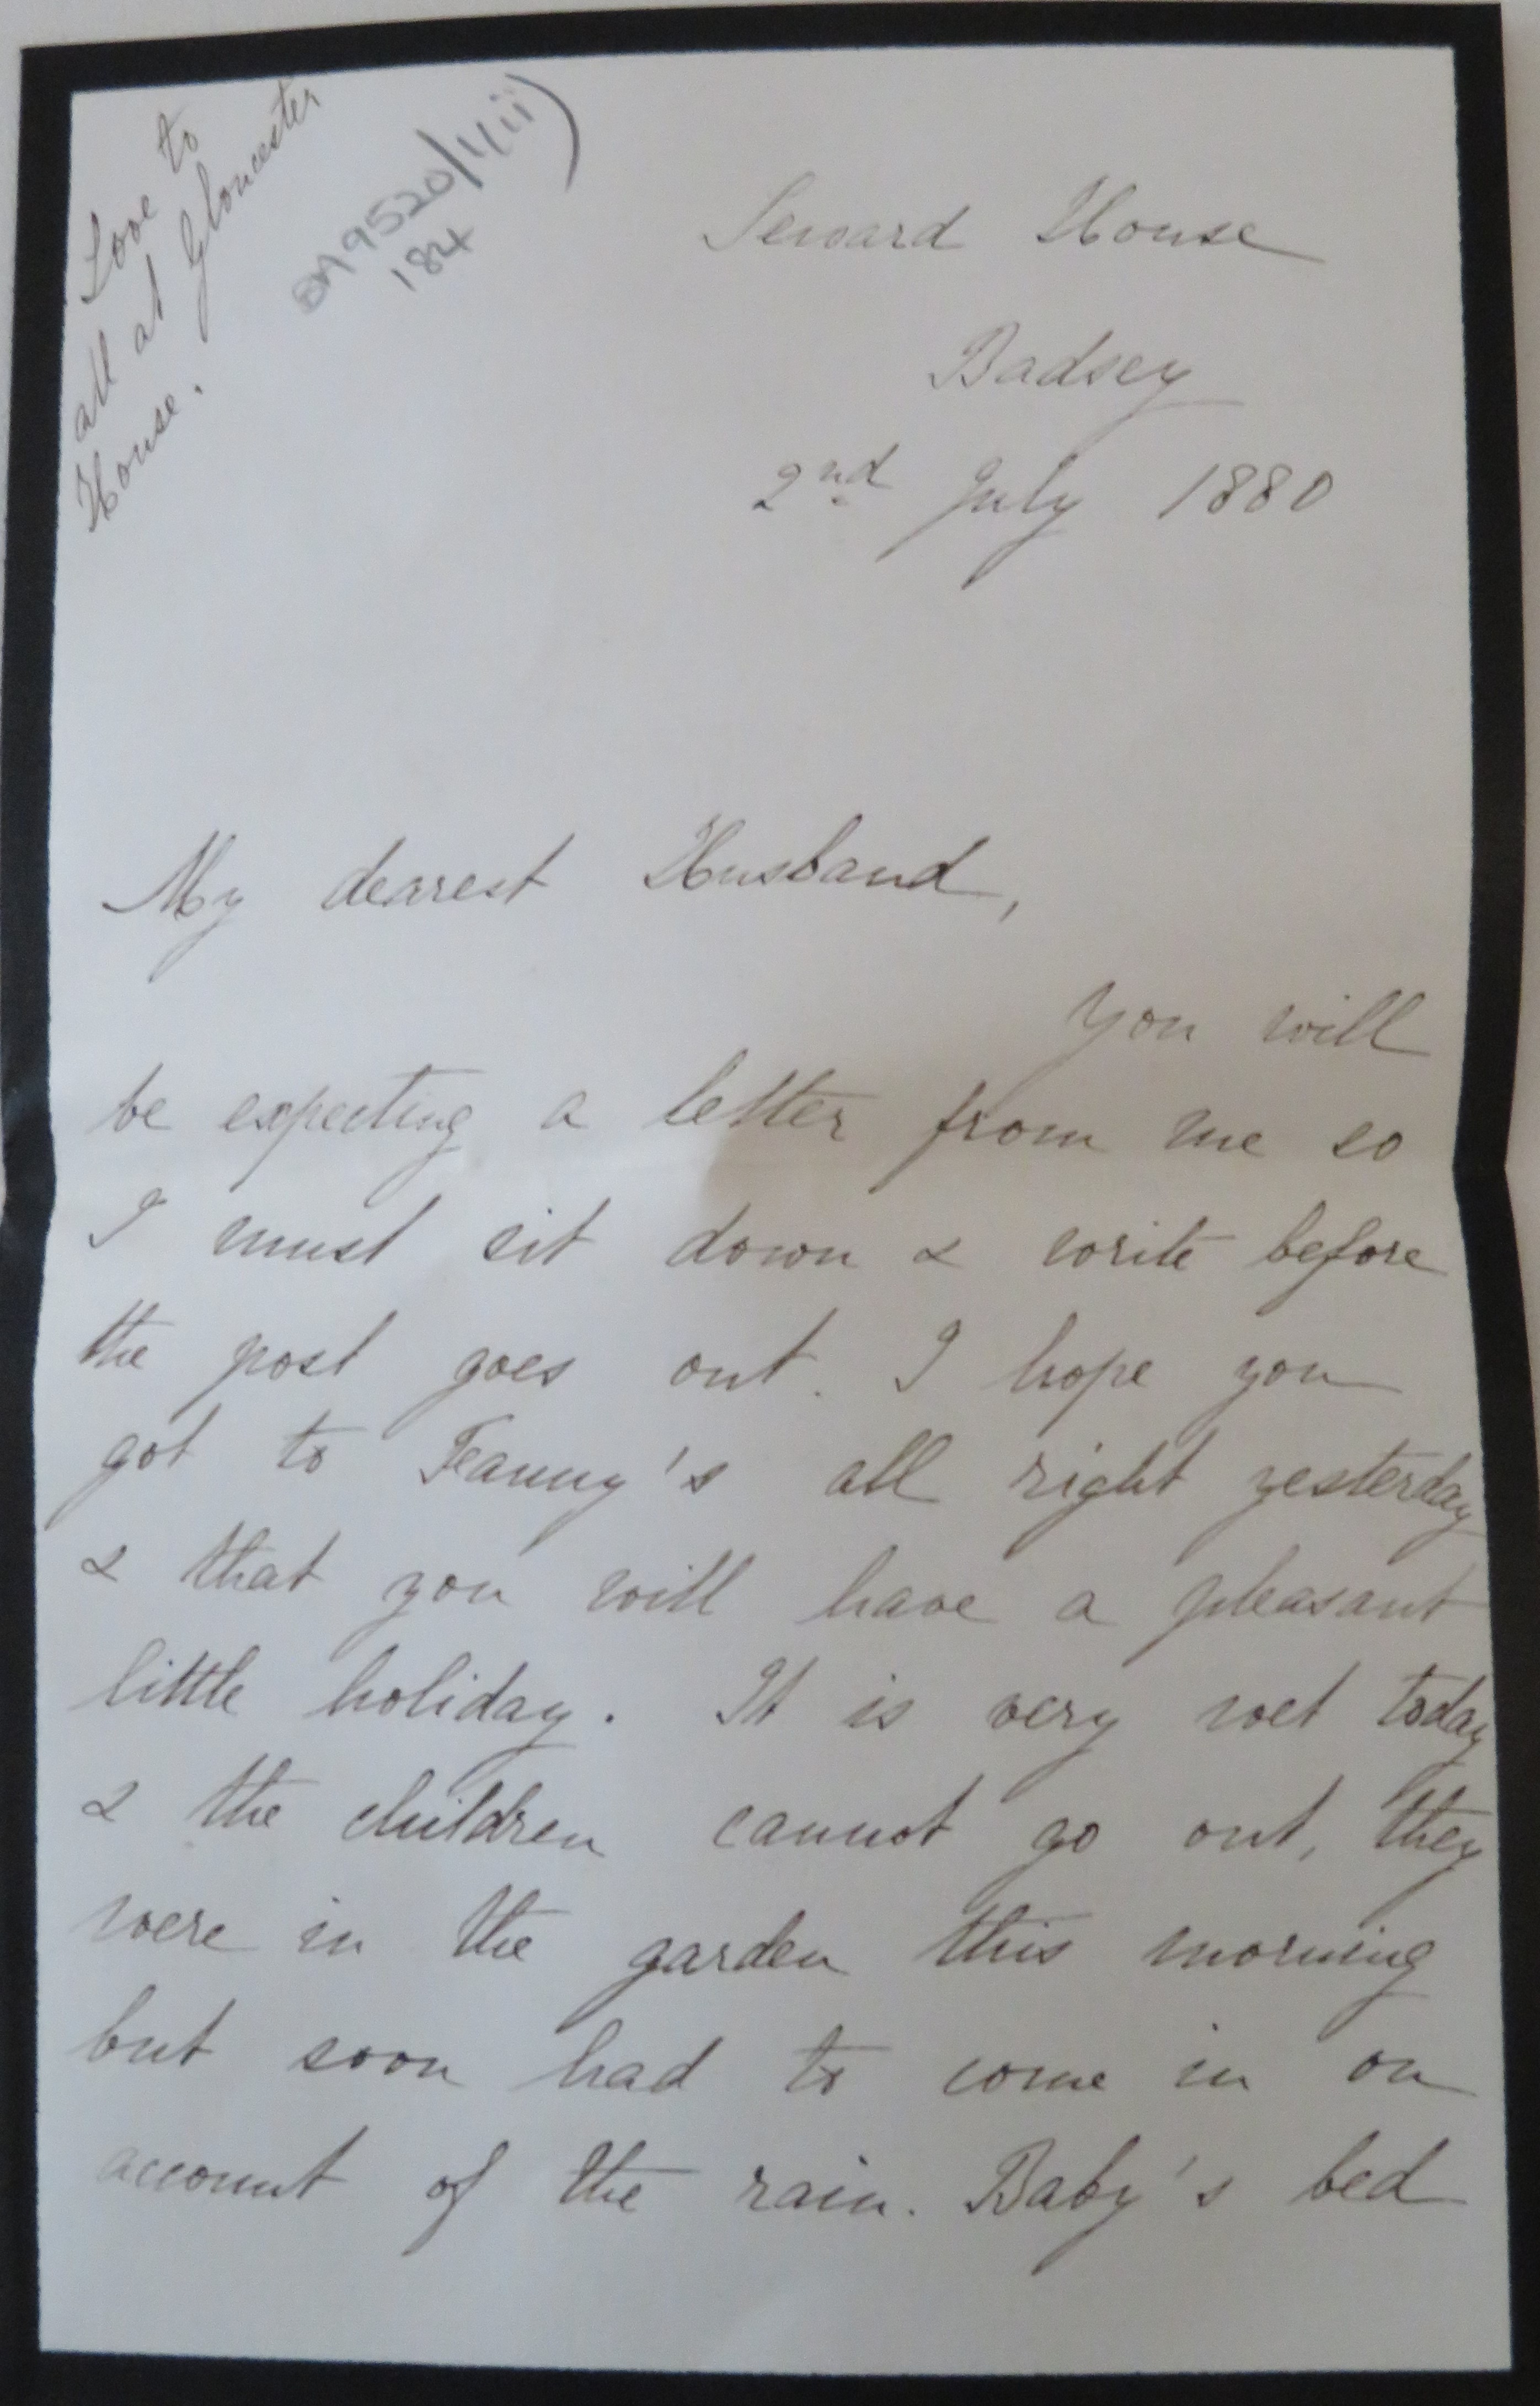 Love to
all at Gloucester
House.
BA9520/1(ii)
184
Seward House
Badsey
2nd July 1880
My dearest Husband,
You will
be expecting a letter from me so
I must sit down & write before
the post goes out. I hope you
got to Fanny's all right yesterday
& that you will have a pleasant
little holiday. It is very wet today
& the children cannot go out, they
were in the garden this morning
but soon had to come in on
account of the rain. Baby's bed